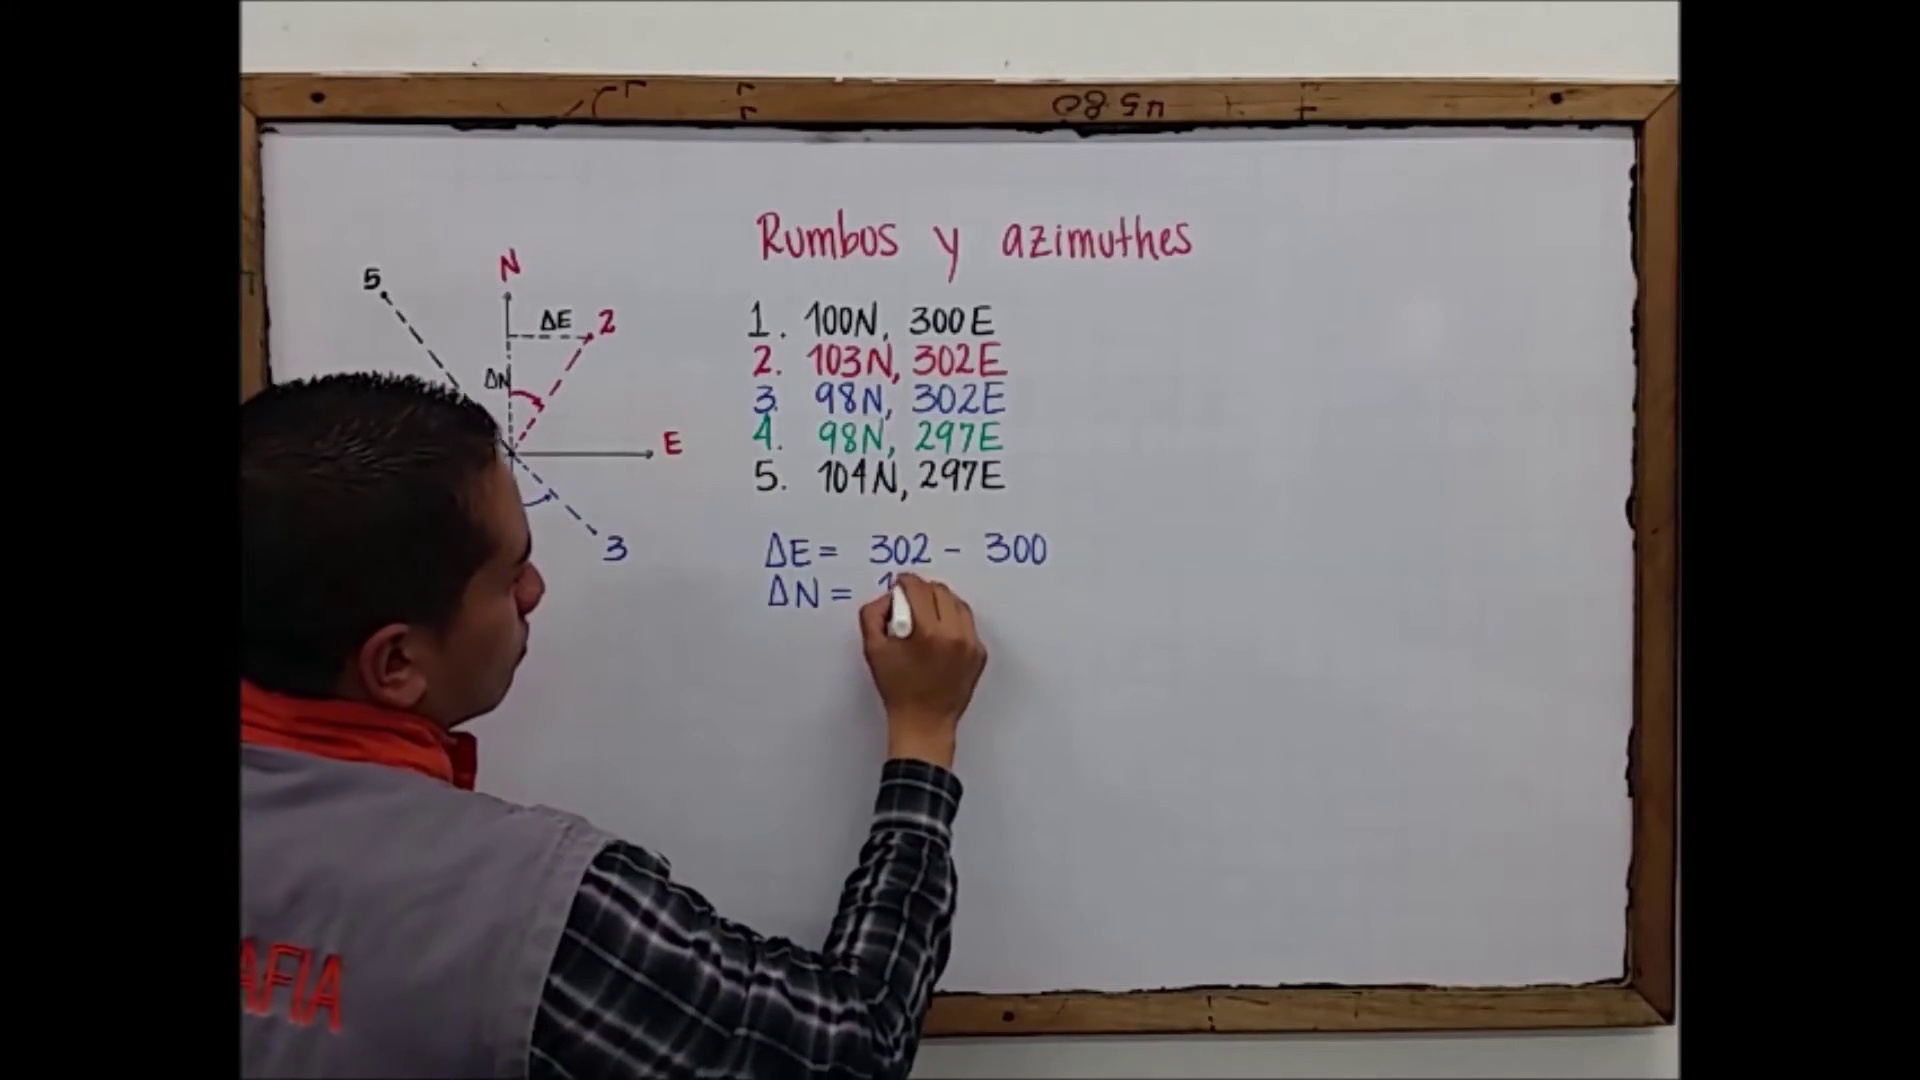 4580
Rumbos y azimuthes
5
N
ΔE 2
ΔN
E
3
1. 100N, 300E
2. 103N, 302E
3. 98N, 302E
4. 98N, 297E
5. 104N, 297E
ΔE = 302 - 300
ΔN =
AFIA